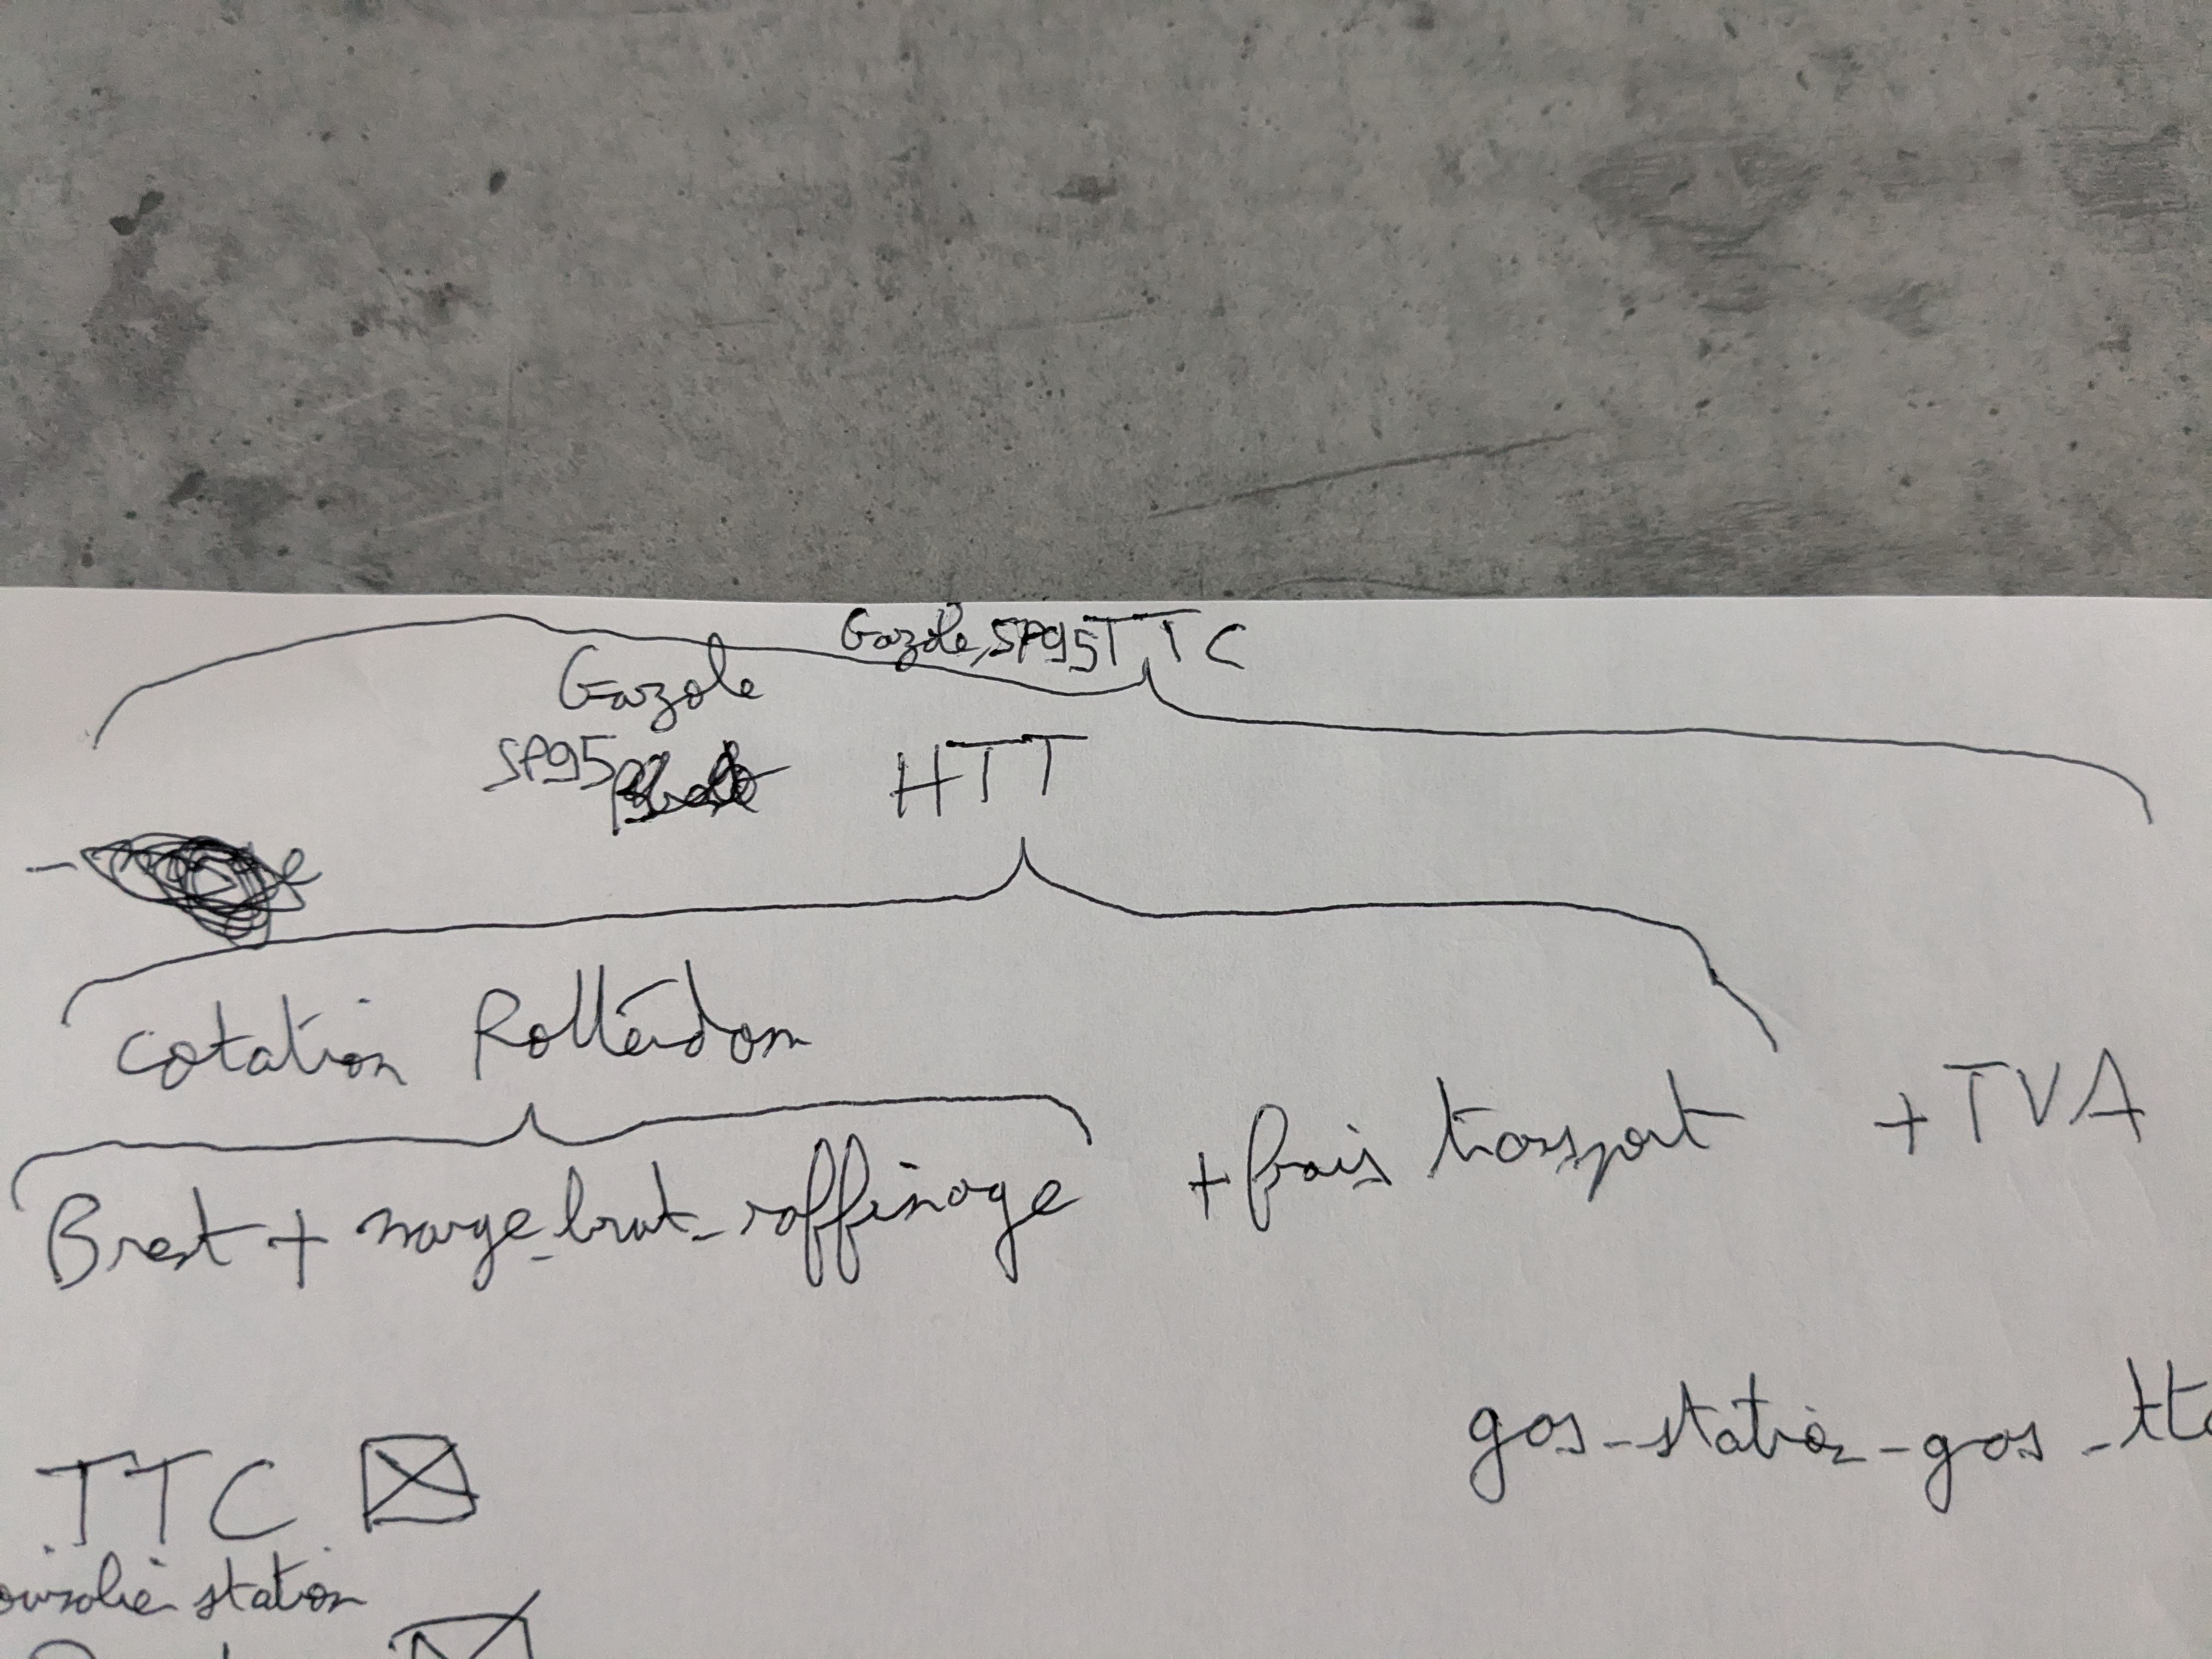 Gazole, SP95 TTC
Gazole
SP95 HTT
cotation Rotterdam
Brent + marge_brut_raffinage + frais transport + TVA
gas_station_gas_ttc
TTC
station